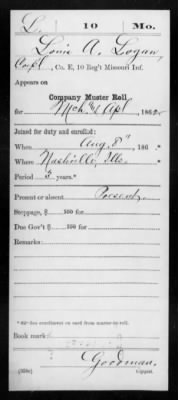 L. 10 Mo.
Louis A. Logan,
Corpl., Co. E, 10 Reg't Missouri Inf.
Appears on
Company Muster Roll
for Mch & Apl, 1862.
Joined for duty and enrolled:
When Aug. 8", 186
Where Nashville, Ills.
Period 3 years.*
Present or absent Present.
Stoppage, $ 100 for
Due Gov't $ 100 for
Remarks:
Book mark:
Goodman.
(358c) Copyist.